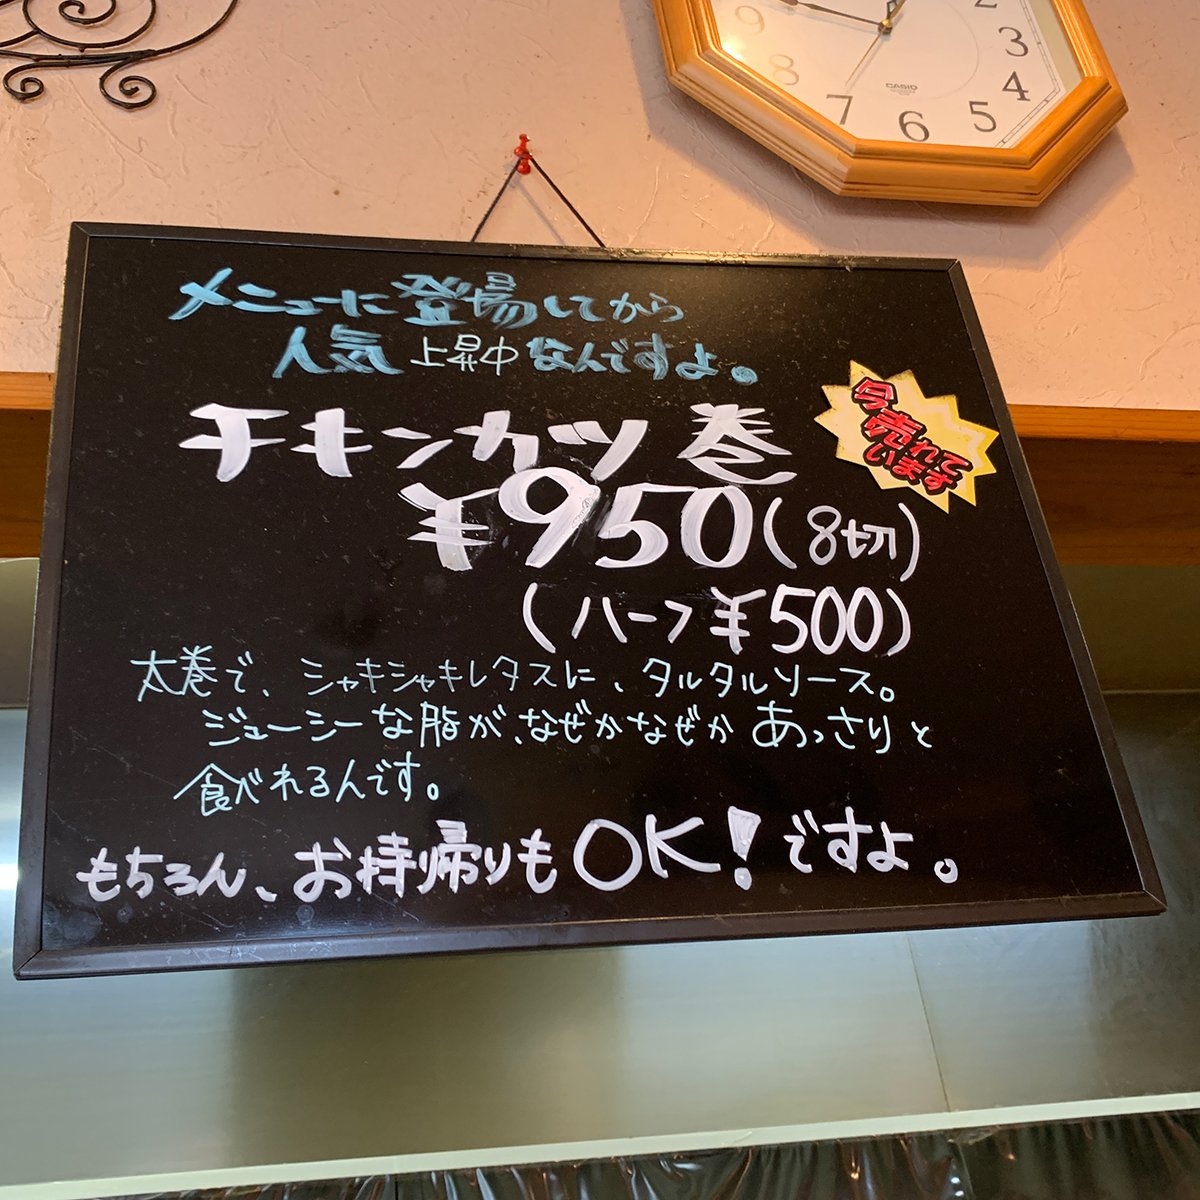 9
8
7
6
5
4
3
2
CASIO
メニューに登場してから
人気上昇中なんですよ。
チキンカツ巻
今
売れて
います
¥950(8切)
(ハーフ¥500)
太巻で、シャキシャキレタスに、タルタルソース。
ジューシーな脂が、なぜかなぜかあっさりと
食べれるんです。
もちろん、お持り帰りもOK!ですよ。